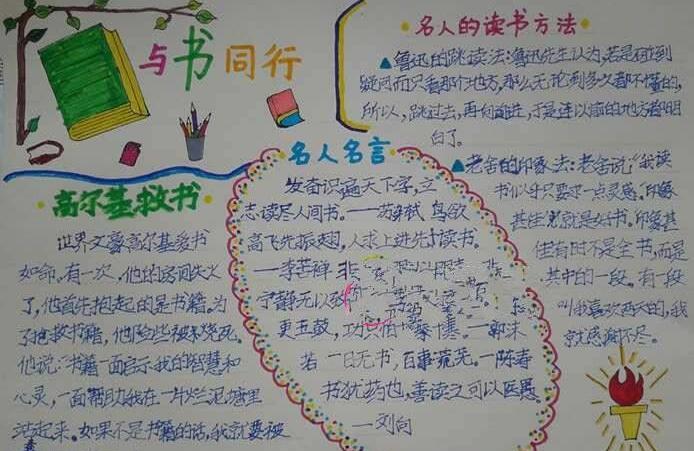 与书同行
高尔基救书
世界文豪高尔基爱书
如命。有一次，他的房间失火
了，他首先抱起的是书籍。为
了抢救书籍，他险些被烧死。
他说："书籍一面启示我的智慧和
心灵，一面帮助我在一片烂泥塘里
站起来。如果不是书籍的话，我就要被
名人名言
发奋识遍天下字，立
志读尽人间书。——苏轼 鸟欲
高飞先振翅，人求上进先读书。
——李苦禅 非
宁静无以致
更五鼓，功
若一日无书，百事荒芜。——陈寿
书犹药也，善读之可以医愚。
——刘向
名人的读书方法
▲鲁迅的跳读法：鲁迅先生认为，若是碰到
疑问而只看那个地方，那么无论到多久都不懂的，
所以，跳过去，再向前进，于是连以前的地方都明
白了。
▲老舍的印象法：老舍说"我读
书似乎只要求一点灵感。'印象
甚佳'就是好书。印象甚
佳有时不是全书，而是
其中的一段。有一段
叫我喜欢两天的，我
就感谢不尽。